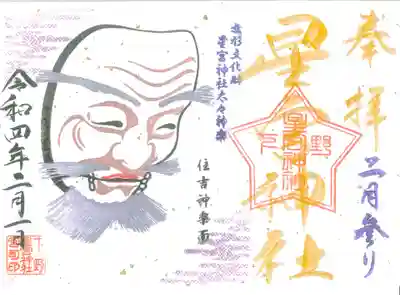 奉拝
二月参り
星宮神社
下野
星宮神社
無形文化財
星宮神社太々神楽
住吉神楽面
令和四年二月一日